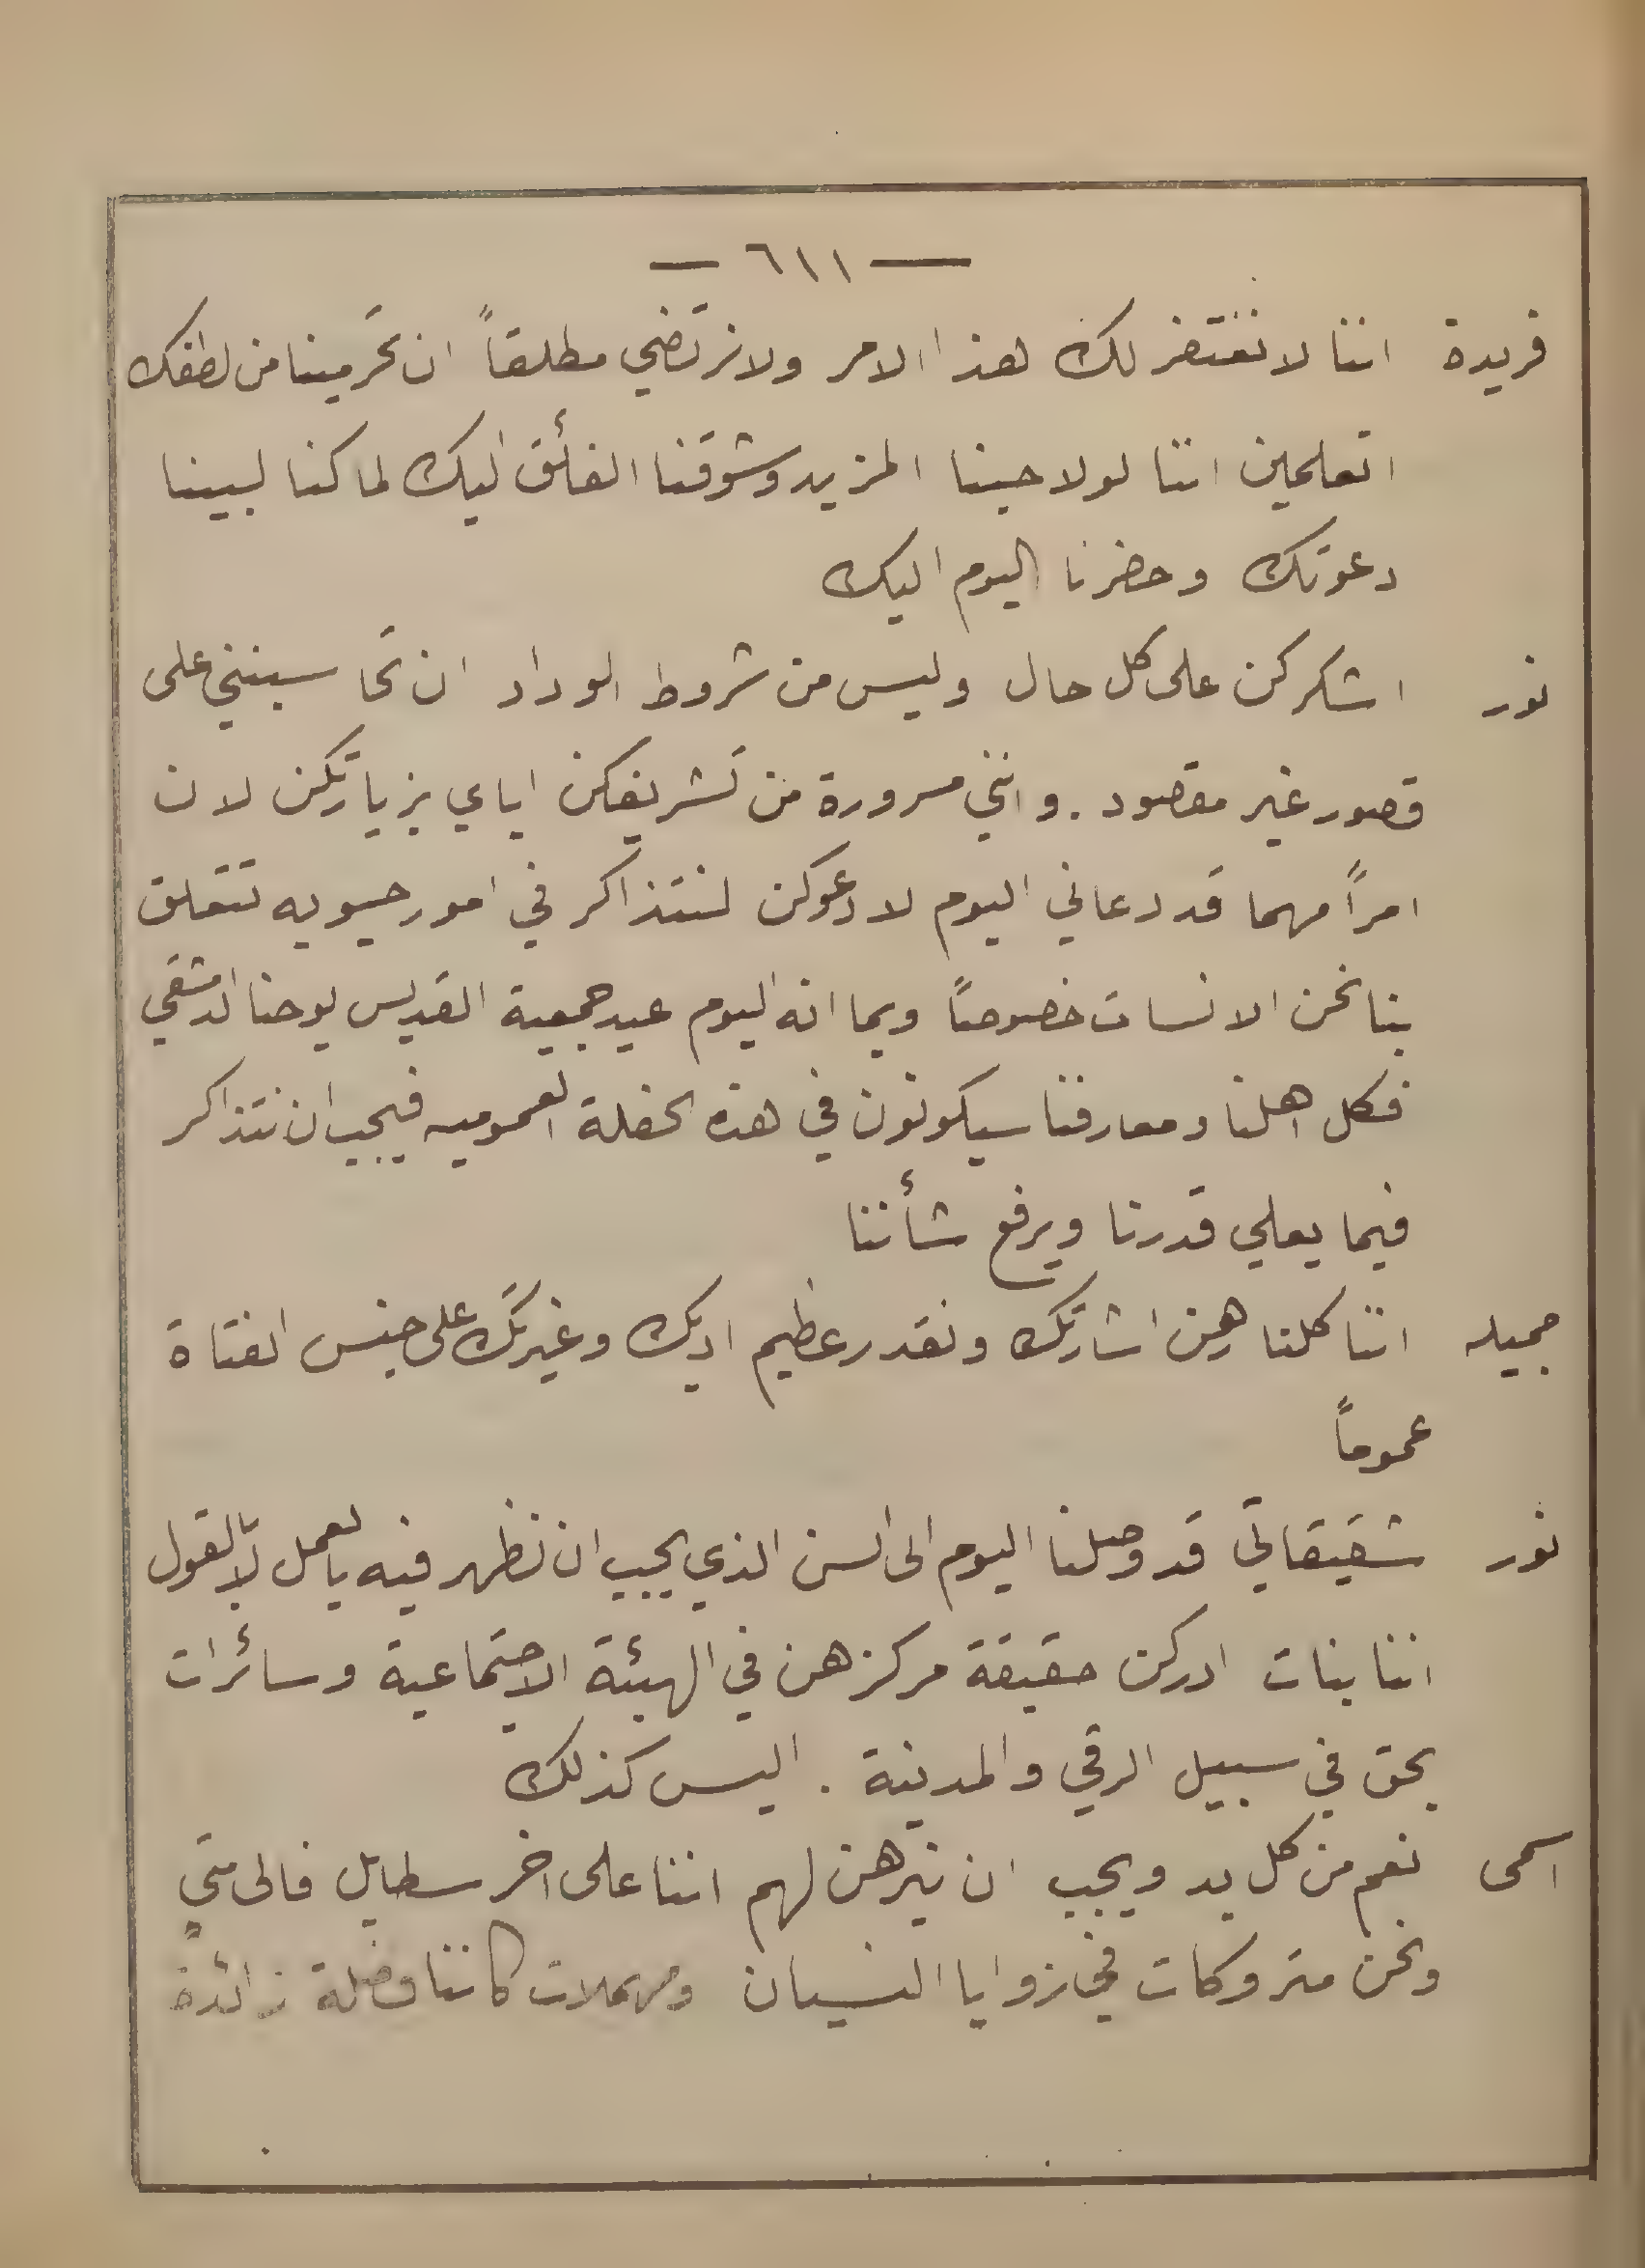 — ٦١١ —
فريدة اننا لا نغتفر لك هذا الامر ولا نرتضي مطلقاً ان تحرمينا من لطفك
اتعلمين اننا لولا حبنا المزيد وشوقنا الفائق اليك لما كنا لبينا
دعوتك وحضرنا اليوم اليك
نور اشكركن على كل حال وليس من شروط الوداد ان تحاسبنني على
قصور غير مقصود . وانني مسرورة من تشريفكن اياي بزيارتكن لان
امراً مهما قد دعاني اليوم لادعوكن لنتذاكر في امور حيويه تتعلق
بنا نحن الانسات خصوصاً وبما انه اليوم عيد جمعية القديس يوحنا الدمشقي
فكل اهلنا ومعارفنا سيكونون في هذه الحفلة العموميه فيجب ان نتذاكر
فيما يعلي قدرنا ويرفع شأننا
جميله اننا كلنا رهن اشارتك ونقدر عظيم ادبك وغيرتك على جنس الفتاة
عموماً
نور شقيقاتي قد وصلنا اليوم الى السن الذي يجب ان نظهر فيه بالعمل لا بالقول
اننا بنات ادركن حقيقة مركزهن في الهيئة الاجتماعية وسائرات
بحق في سبيل الرقي والمدنية . اليس كذلك
اسمى نعم من كل بد ويجب ان نبرهن لهم اننا على اخر سطايل فالى متى
ونحن متروكات في زوايا النسيان ومهملات كاننا فضلة زائدة